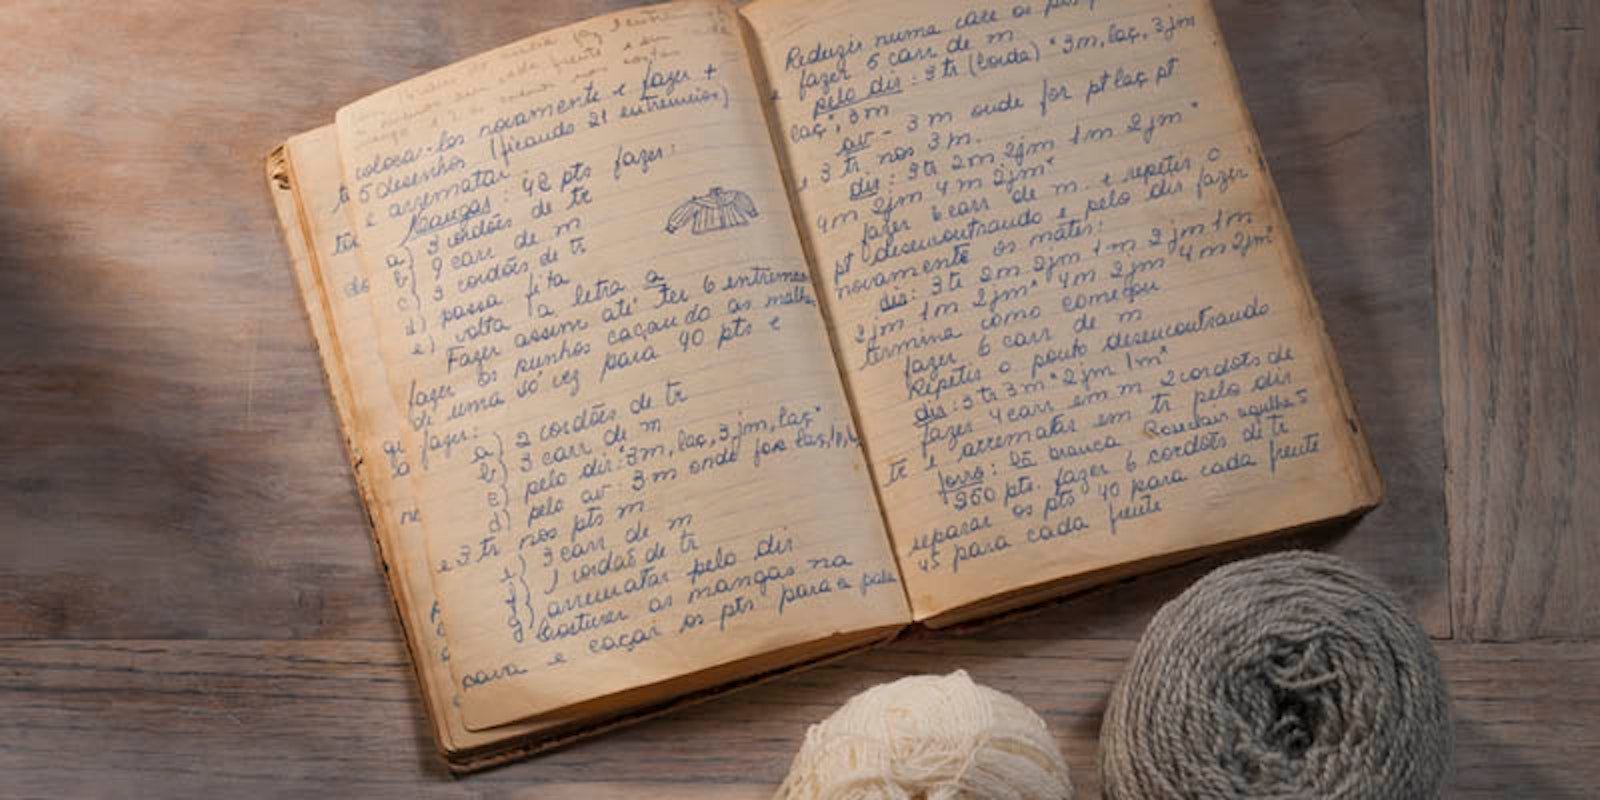 coloca-los novamente e fazer +
5 desenhos (ficando 21 entremeios)
e arrematar
Mangas: 42 pts fazer:
a) 3 cordões de tr
b) 9 carr de m
c) 3 cordões de tr
d) passa fita
e) volta a letra a
Fazer assim até ter 6 entremeios
fazer os punhos caçando as malhas
de uma só vez para 40 pts e
fazer:
a) 2 cordões de tr
b) 3 carr de m
c) pelo dir: 3m, laç, 3jm, laç*
d) pelo av: 3m onde for laç,
e 3 tr nos pts m
3 carr de m
1 cordão de tr
g) arrematar pelo dir
Costurar as mangas na
cava e caçar os pts para a pala
Reduzir numa carr os
fazer 6 carr de m
pelo dir: 3 tr (borda) *3m, laç, 3jm
laç*, 3m
av - 3m onde for pt laç pt
e 3 tr nos 3m.
dir: 3tr 2m 2jm 1m 2jm*
4m 2jm 4m 2jm*
fazer 6 carr de m. e repetir o
pt desencontrando e pelo dir fazer
novamente os mates:
dir: 3tr 2m 2jm 1m 2jm 1m
2jm 1m 2jm* 4m 2jm 4m 2jm*
termina como começou
fazer 6 carr de m
Repetir o ponto desencontrando
dir: 3tr 3m* 2jm 1m*
fazer 4 carr em m 2 cordões de
tr e arrematar em tr pelo dir
forro: lã branca agulha 5
260 pts. fazer 6 cordões de tr
separar os pts 40 para cada frente
45 para cada frente